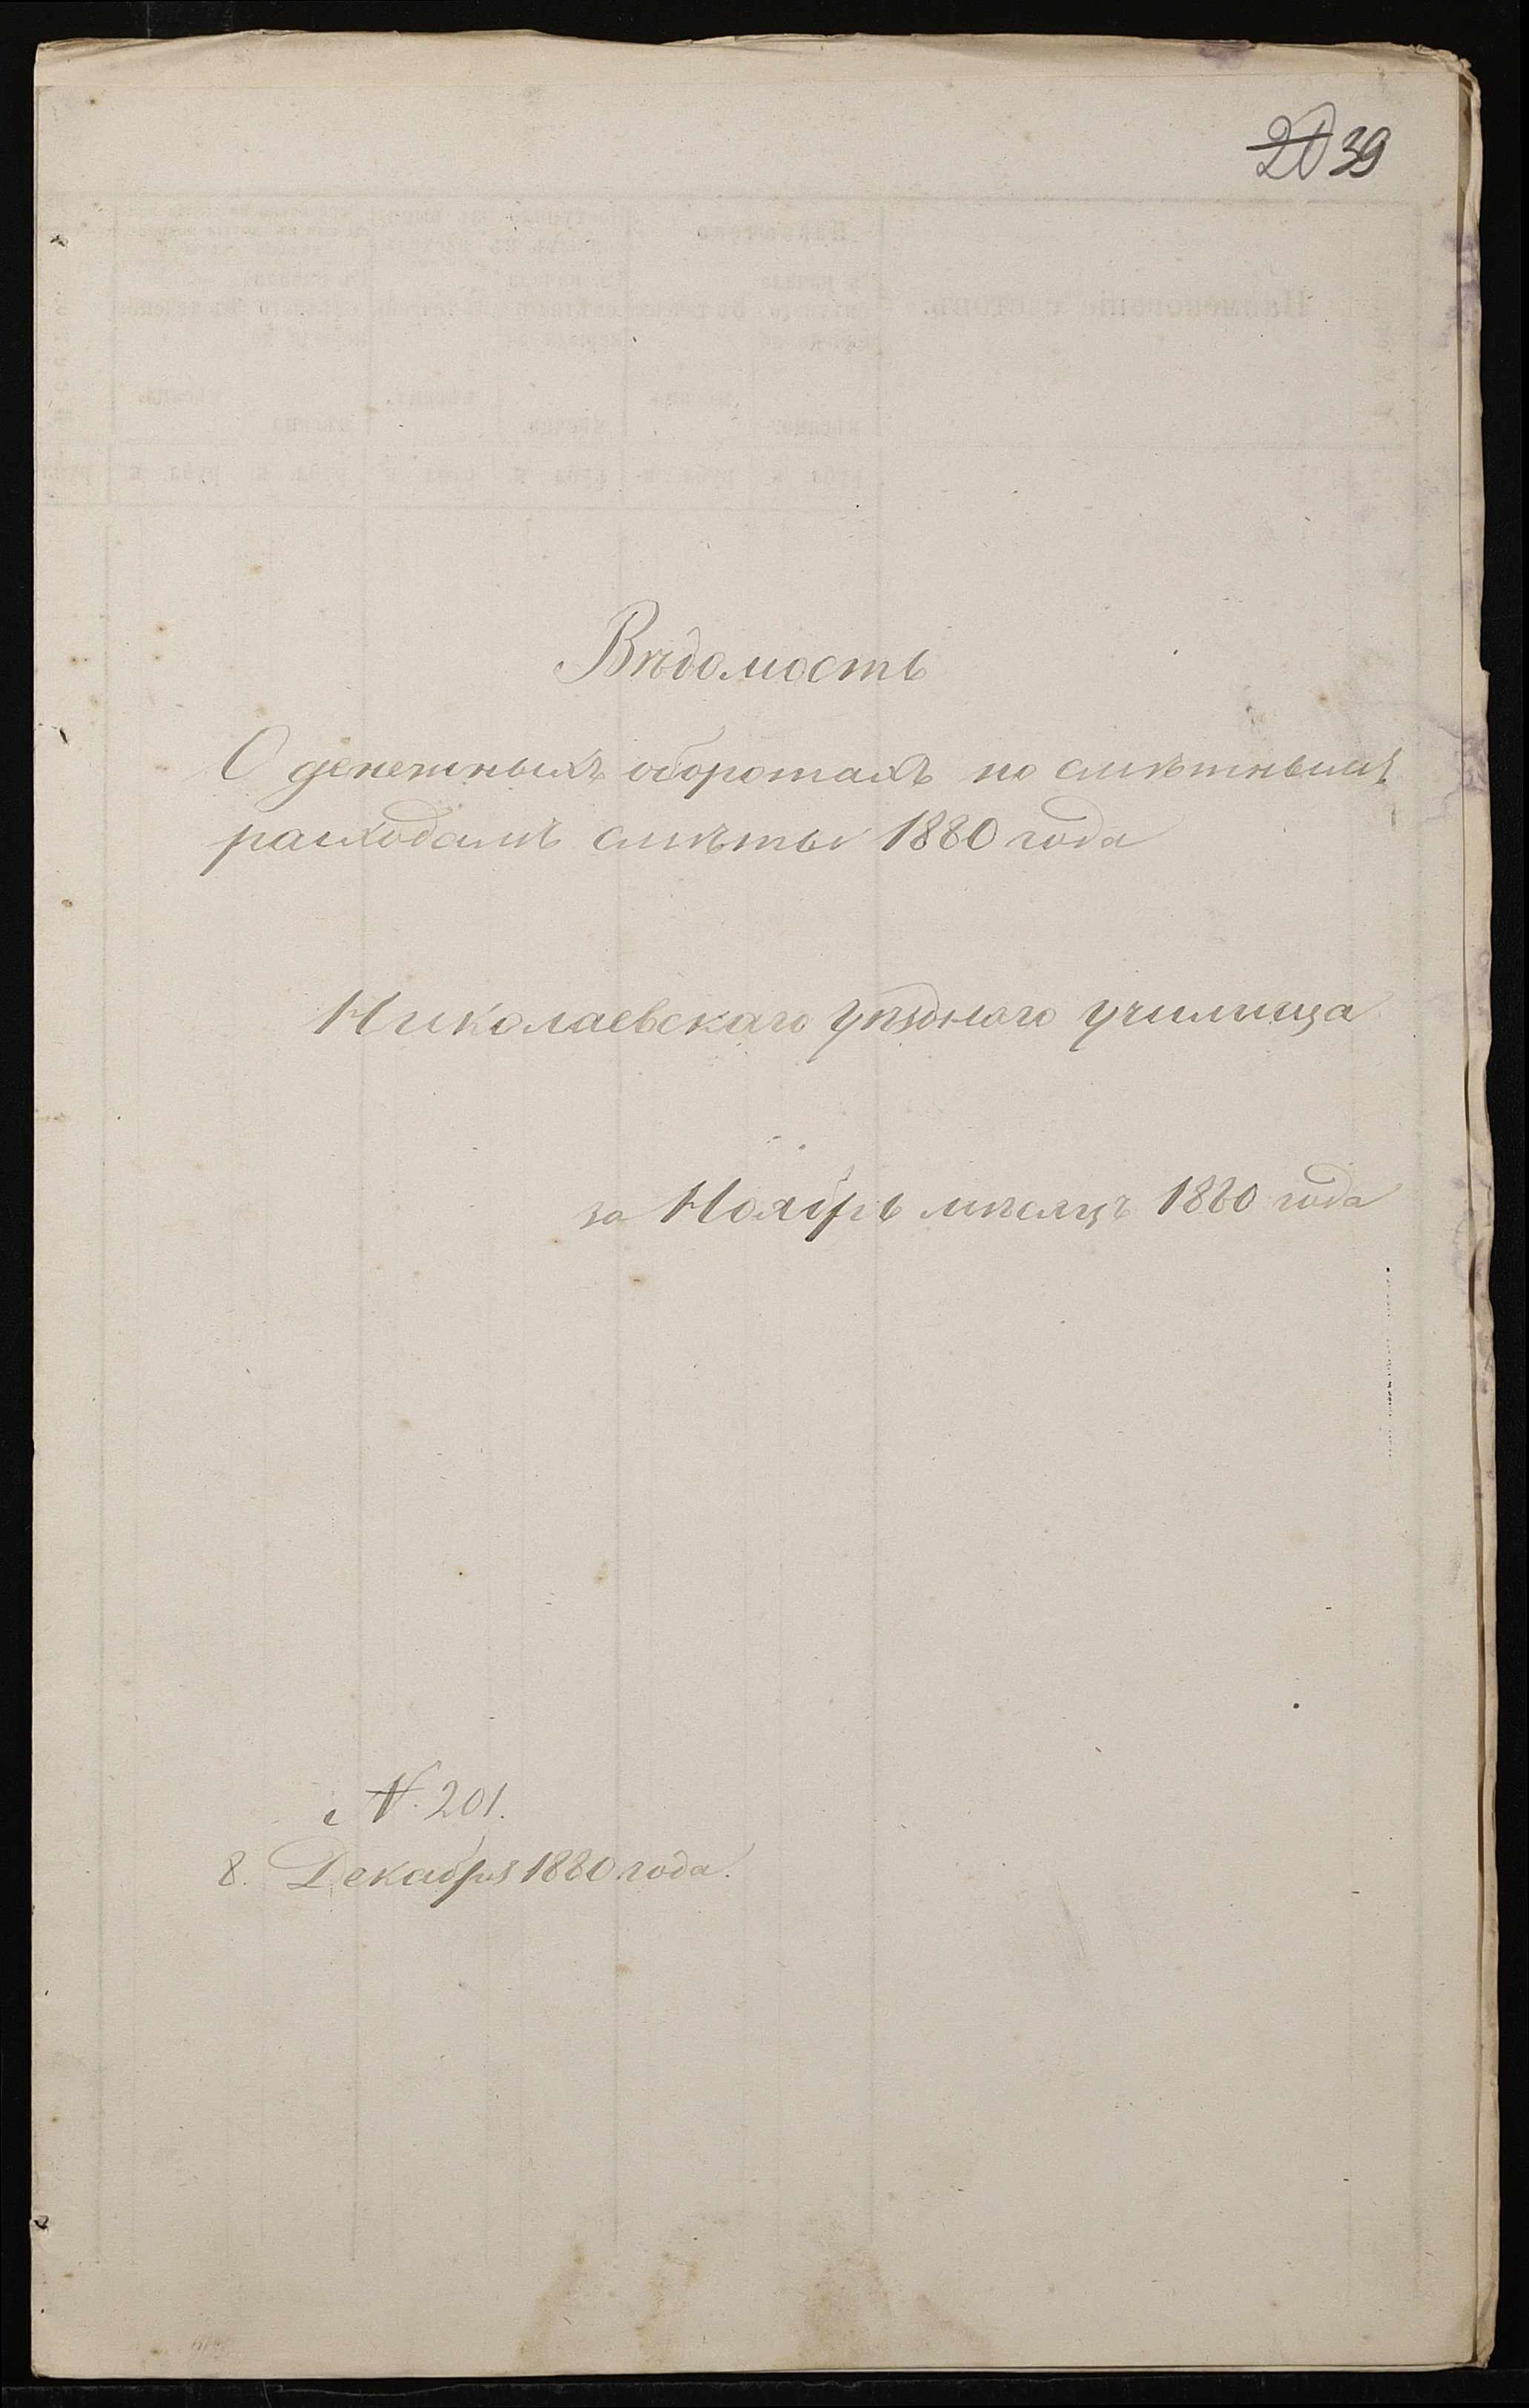 20 39
Вѣдомость
О денежныхъ оборотахъ по смѣтнымъ
расходамъ смѣты 1880 года
Николаевскаго уѣзднаго училища
за Ноябрь мѣсяцъ 1880 года
№ 201.
8. Декабря 1880 года.